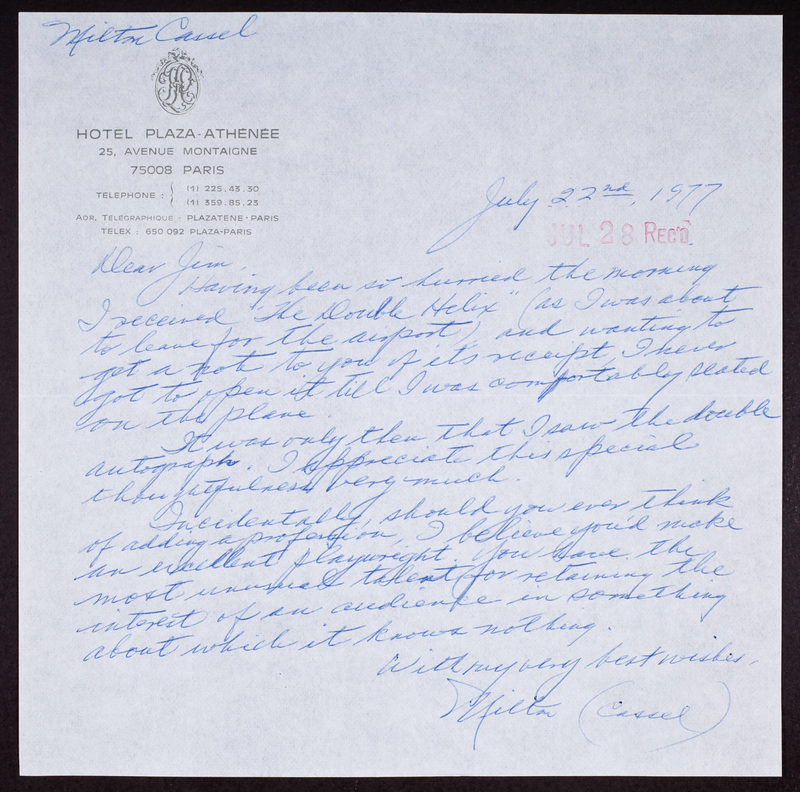 Milton Cassel
HOTEL PLAZA-ATHÉNÉE
25, AVENUE MONTAIGNE
75008 PARIS
TELEPHONE : { (1) 225.43.30
(1) 359.85.23
ADR. TÉLÉGRAPHIQUE : PLAZATENE-PARIS
TELEX : 650 092 PLAZA-PARIS
July 22nd, 1977
JUL 28 REC'D
Dear Jim,
Having been so hurried the morning
I received "The Double Helix" (as I was about
to leave for the airport), and wanting to
get a note to you of its receipt, I never
got to open it till I was comfortably seated
on the plane.
It was only then that I saw the double
autograph. I appreciate this special
thoughtfulness very much.
Incidentally, should you ever think
of adding a profession, I believe you'd make
an excellent playwright. You have the
most unusual talent for retaining the
interest of an audience in something
about which it knows nothing.
With my very best wishes,
Milton (Cassel)